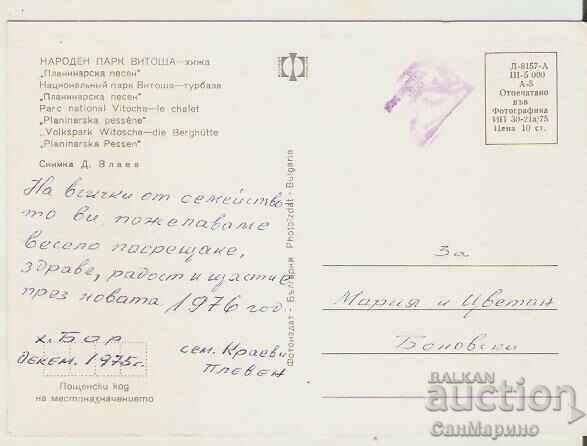 НАРОДЕН ПАРК ВИТОША—хижа
„Планинарска песен"
Национальный парк Витоша—турбаза
„Планинарска песен"
Parc national Vitocha—le chalet
„Planinarska pessène"
„Volkspark Witoscha—die Berghütte
„Planinarska Pessen"
Снимка Д. Влаев
На всички от семейство
то ви пожелаваме
весело посрещане,
здраве, радост и щастие
през новата 1976 год.
х. Бор
декем. 1975г.
сем. Краеви
Плевен
Пощенски код
на местоназначението
Фотоиздат - България Photoizdat - Bulgaria
Д-8157-А
III-5 000
А-5
Отпечатано
във
Фотографика
ИП 30-21а/75
Цена 10 ст.
За
Мария и Цветан
Боновски
BALKAN
auction
СанМарино